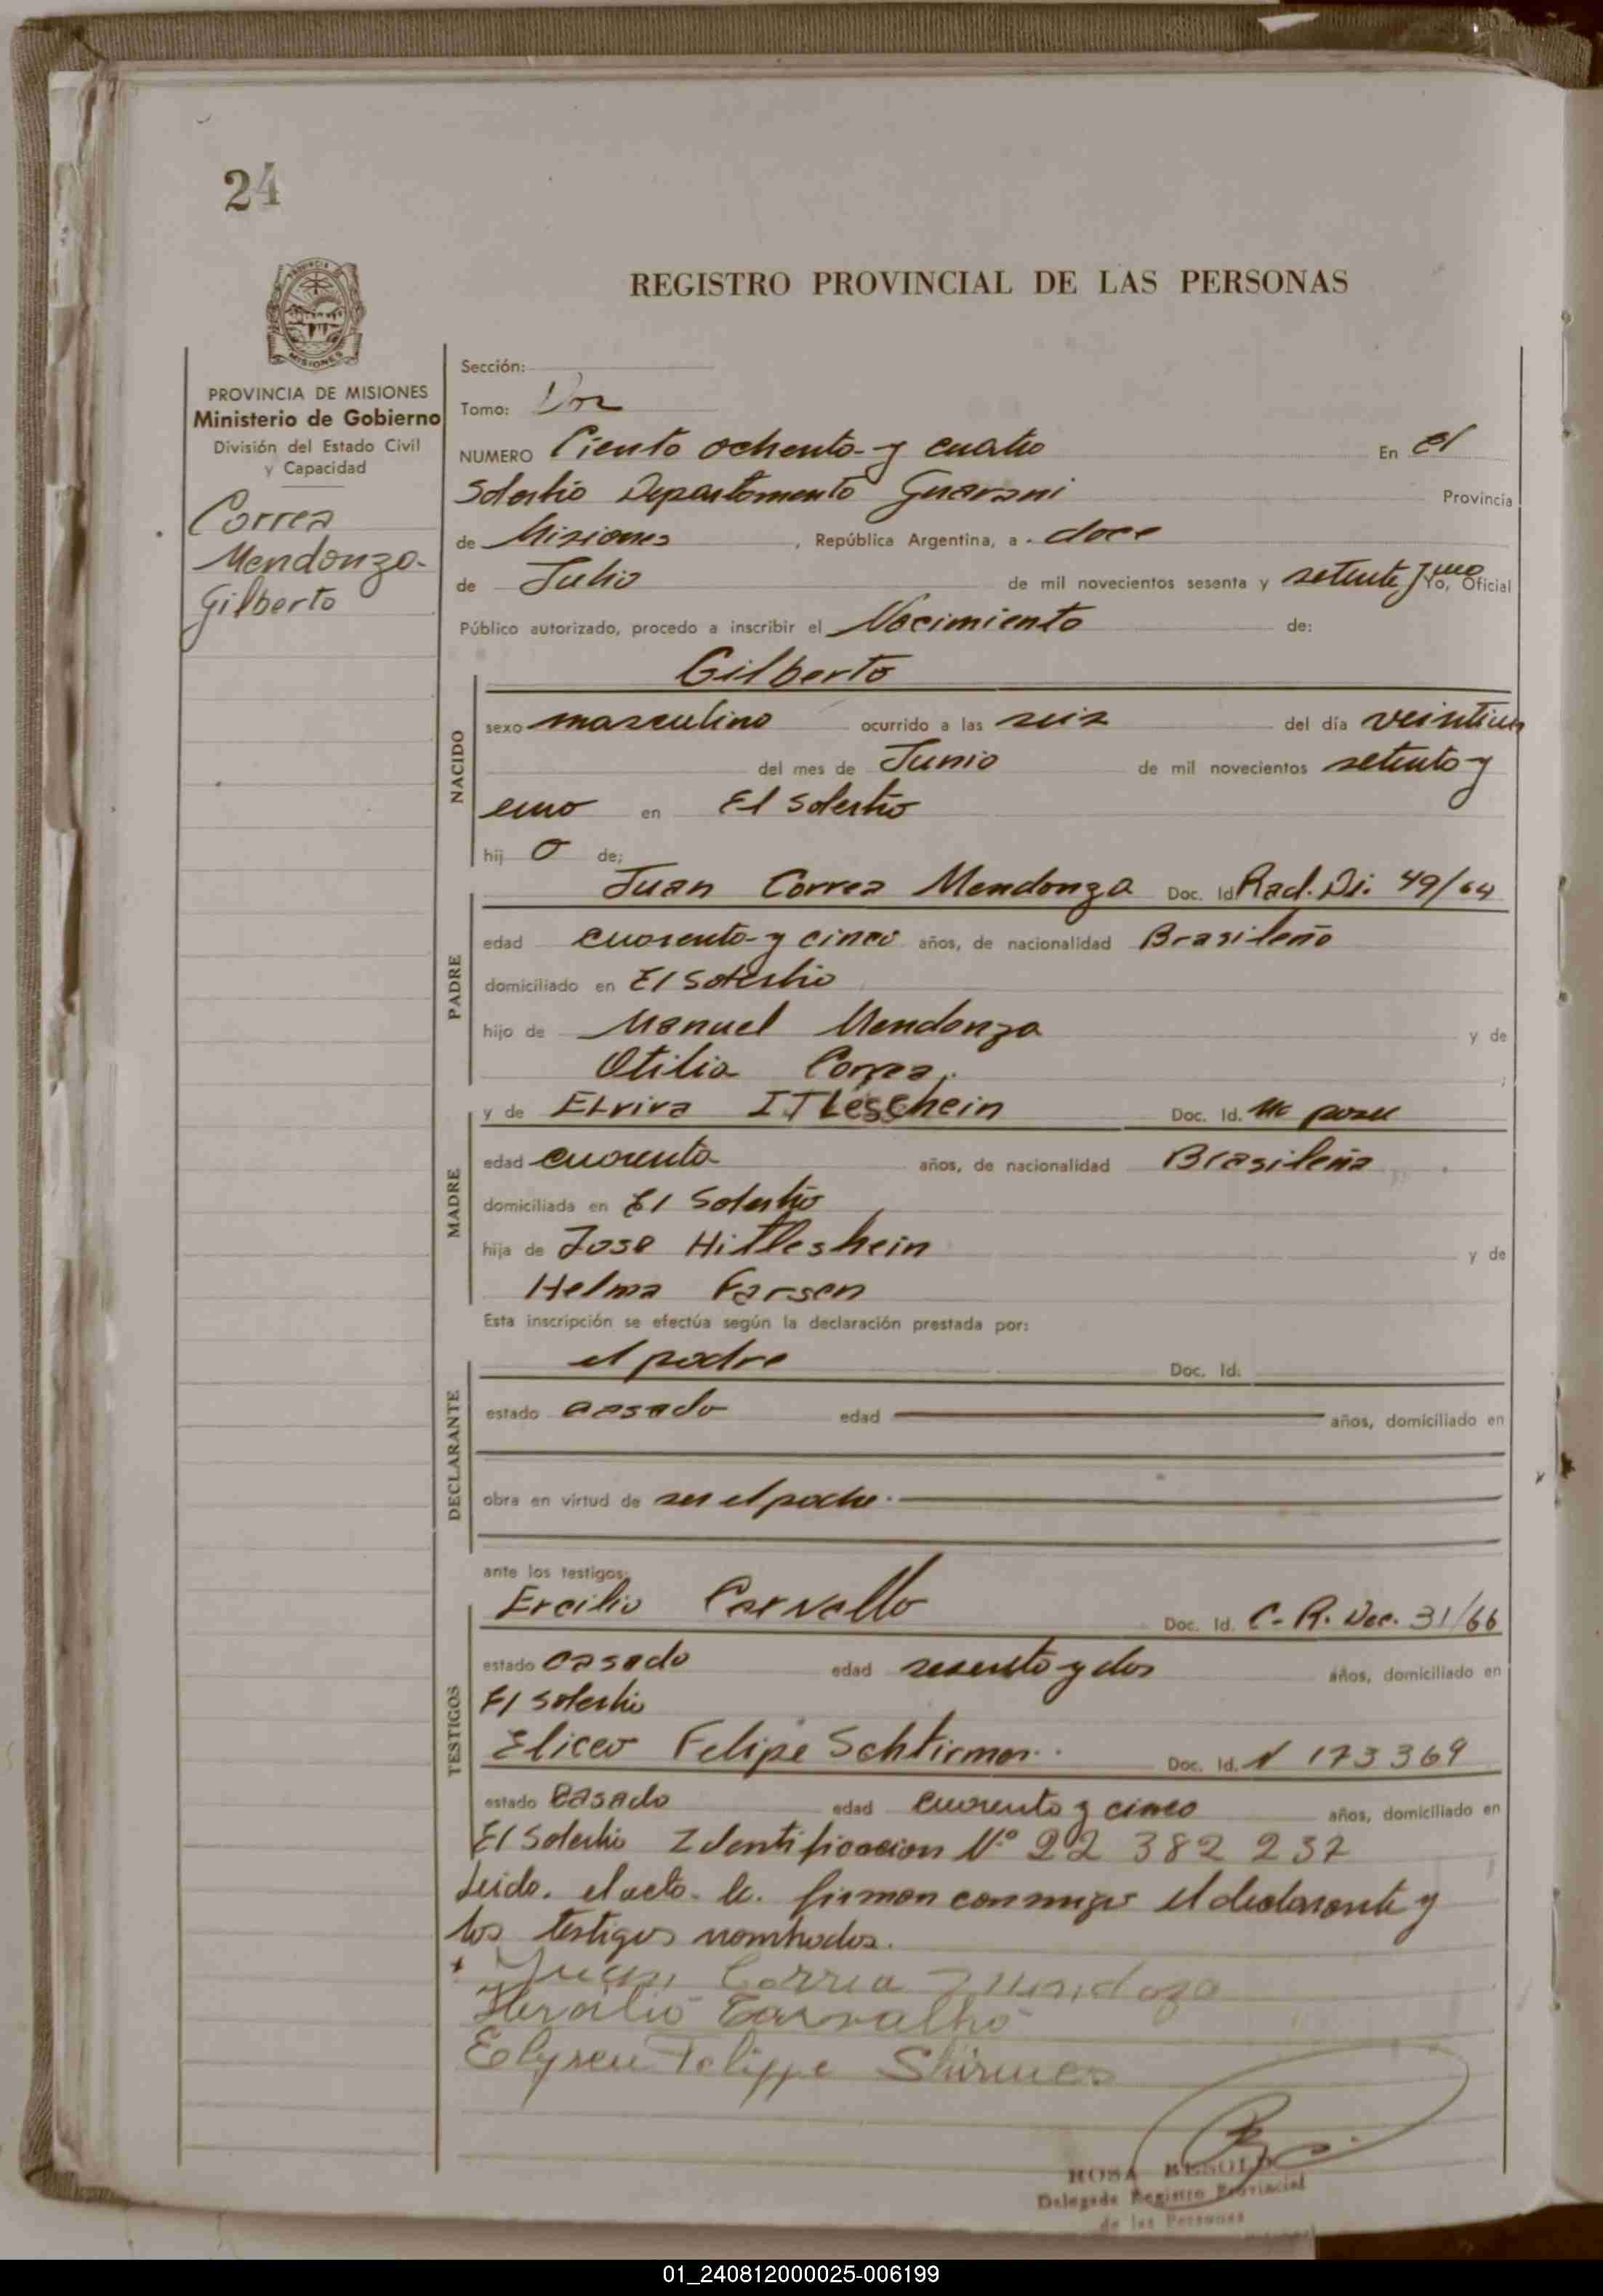 24
REGISTRO PROVINCIAL DE LAS PERSONAS
MISIONES
PROVINCIA DE MISIONES
Ministerio de Gobierno
División del Estado Civil
y Capacidad
Correa
Mendonza
Gilberto
Sección:
Tomo: Dos
NUMERO Ciento ochenta y cuatro En el
Soberbio Departamento Guarani Provincia
de Misiones, República Argentina, a doce
de Julio de mil novecientos sesenta y setenta y uno Yo, Oficial
Público autorizado, procedo a inscribir el Nacimiento de:
NACIDO
Gilberto
sexo masculino ocurrido a las seis del día veintiun
del mes de Junio de mil novecientos setenta y
uno en El Soberbio
hij o de;
PADRE
Juan Correa Mendonza Doc. Id Rad. Di. 49/64
edad cuarenta y cinco años, de nacionalidad Brasileño
domiciliado en El Soberbio
hijo de Manuel Mendonza y de
Otilia Correa ;
MADRE
y de Elvira ITLeschein Doc. Id. No posee
edad cuarenta años, de nacionalidad Brasileña
domiciliada en El Soberbio
hija de Jose Hitleshein y de
Helma Farsen
Esta inscripción se efectúa según la declaración prestada por:
DECLARANTE
el padre Doc. Id:
estado casado edad años, domiciliado en
obra en virtud de ser el padre.
ante los testigos:
TESTIGOS
Ercilio Carvallo Doc. Id. C. R. Dec. 31/66
estado casado edad sesenta y dos años, domiciliado en
El Soberbio
Eliceo Felipe Schtirmer Doc. Id. N 173369
estado casado edad cuarenta y cinco años, domiciliado en
El Soberbio Identificacion Nº 22 382 237
Leida el acta la firman conmigo el declarante y
los testigos nombrados.
Juan Correa Mendoza
Hersilio Carvalho
Elyseu Felippe Shirmer
ROSA
Delegada Registro Provincial
de las Personas
01_240812000025-006199